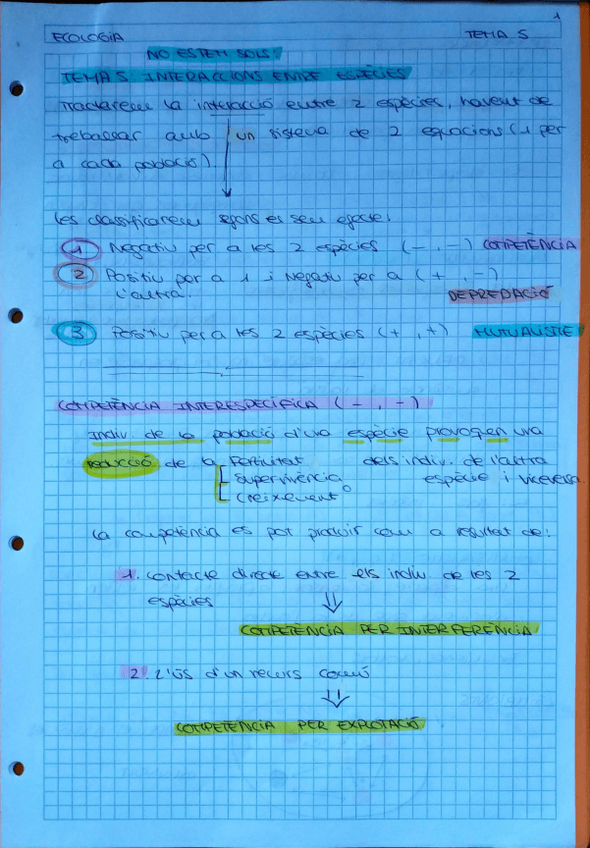 1
ECOLOGIA TEMA 5
NO ESTEM SOLS!
TEMA 5: INTERACCIONS ENTRE ESPÈCIES
Tractarem la interacció entre 2 espècies, havent de
treballar amb un sistema de 2 equacions (1 per
a cada població).
Les classificarem segons el seu efecte:
1 Negatiu per a les 2 espècies (-,-) COMPETÈNCIA
2 Positiu per a 1 i Negatiu per a (+,-)
l'altra. DEPREDACIÓ
3 Positiu per a les 2 espècies (+,+) MUTUALISME
COMPETÈNCIA INTERESPECÍFICA (-,-)
Indiv. de la població d'una espècie provoquen una
reducció de la Fertilitat dels indiv. de l'altra
Supervivència espècie i viceversa.
Creixement
La competència es pot produir com a resultat de:
1. Contacte directe entre els indiv. de les 2
espècies
COMPETÈNCIA PER INTERFERÈNCIA
2. L'ús d'un recurs comú
COMPETÈNCIA PER EXPLOTACIÓ